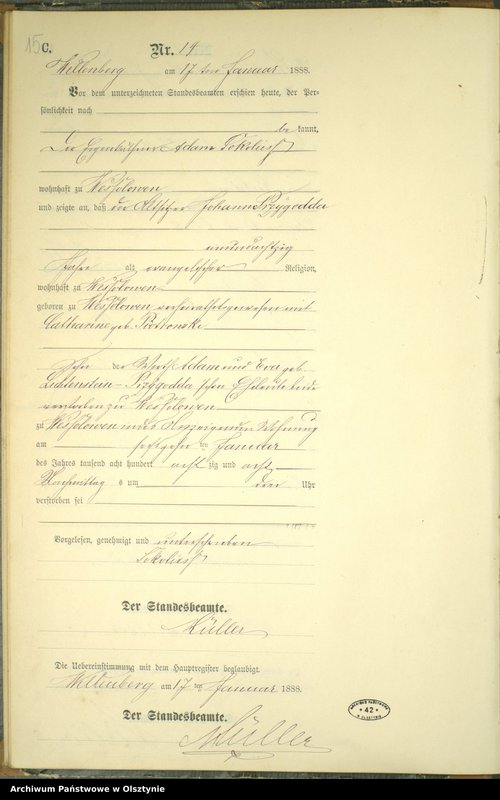 15 C.
Nr. 14
Willenberg am 17 ten Januar 1888.
Vor dem unterzeichneten Standesbeamten erschien heute, der Per-
sönlichkeit nach
be kannt,
Der Adam Sokoliess
wohnhaft zu Wessolowen
und zeigte an, daß der Altsitzer Johann Przygodda
undachtzig
Jahre alt, evangelischer Religion,
wohnhaft zu Wessolowen
geboren zu Wessolowen verheirathet gewesen mit
Catharine geb.
Sohn der Wirth Adam und Eva geb.
Przygodda'schen Eheleute beide
verstorben zu Wessolowen
zu Wessolowen in Wohnung
am ten Januar
des Jahres tausend acht hundert acht zig und acht
Nachmittag s um drei Uhr
verstorben sei
Vorgelesen, genehmigt und unterschrieben
Sokoliess
Der Standesbeamte.
Müller
Die Uebereinstimmung mit dem Hauptregister beglaubigt.
Willenberg am 17 ten Januar 1888.
Der Standesbeamte.
Müller
ARCHIWUM PAŃSTWOWE
* 42 *
W OLSZTYNIE
Archiwum Państwowe w Olsztynie